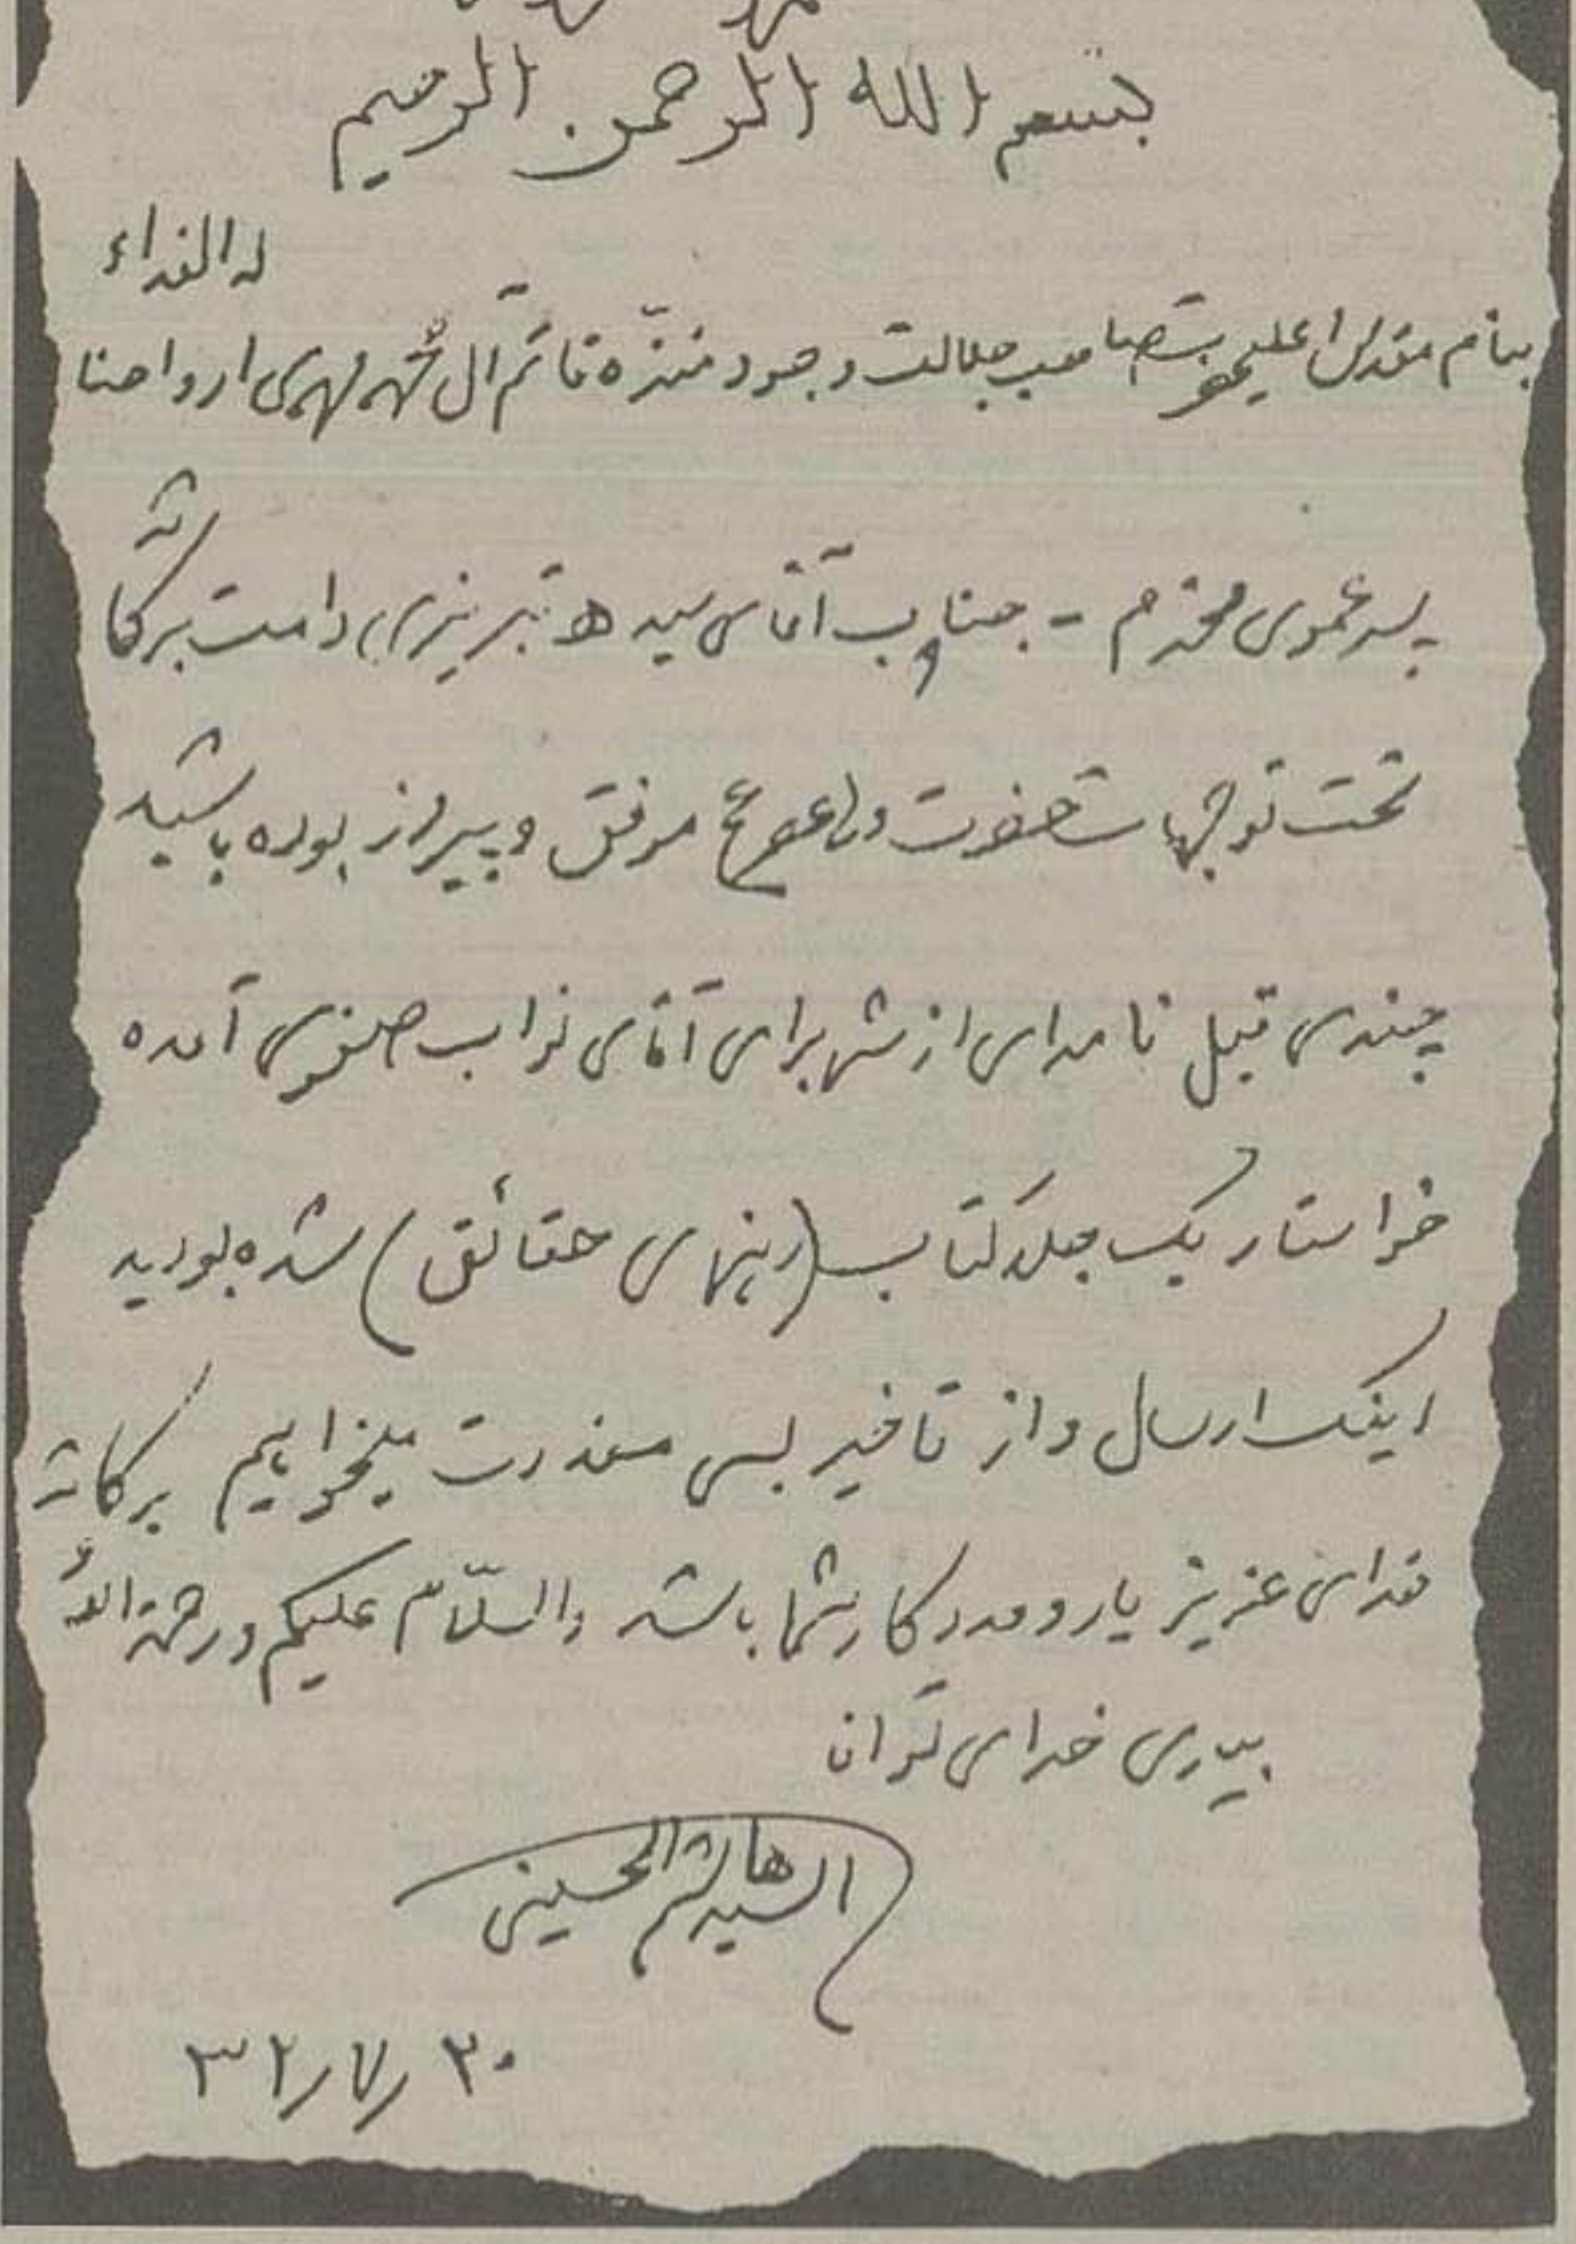 بسم الله الرحمن الرحیم
بنام مقدس اعلیحضرت صاحب جلالت وجود منزّه قائم آل محمد مهدی ارواحنا له الفداء
پسر عموی محترم - جناب آقای سید ه تبریزی، دامت برکاته
تحت توجهات حضرت ولی عصر عج موفق و پیروز بوده باشید
چندی قبل نامه‌ای از شهر برای آقای نواب صفوی آمده
خواستار یک جلد کتاب (رهنمای حقائق) شده بودید
اینک ارسال و از تاخیر بسی معذرت میخواهیم
خدای عزیز یار و مددکار شما باشد والسلّام علیکم ورحمة الله برکاته
بیاری خدای توانا
السید هاشم الحسینی
۲۰ / ۷ / ۳۲